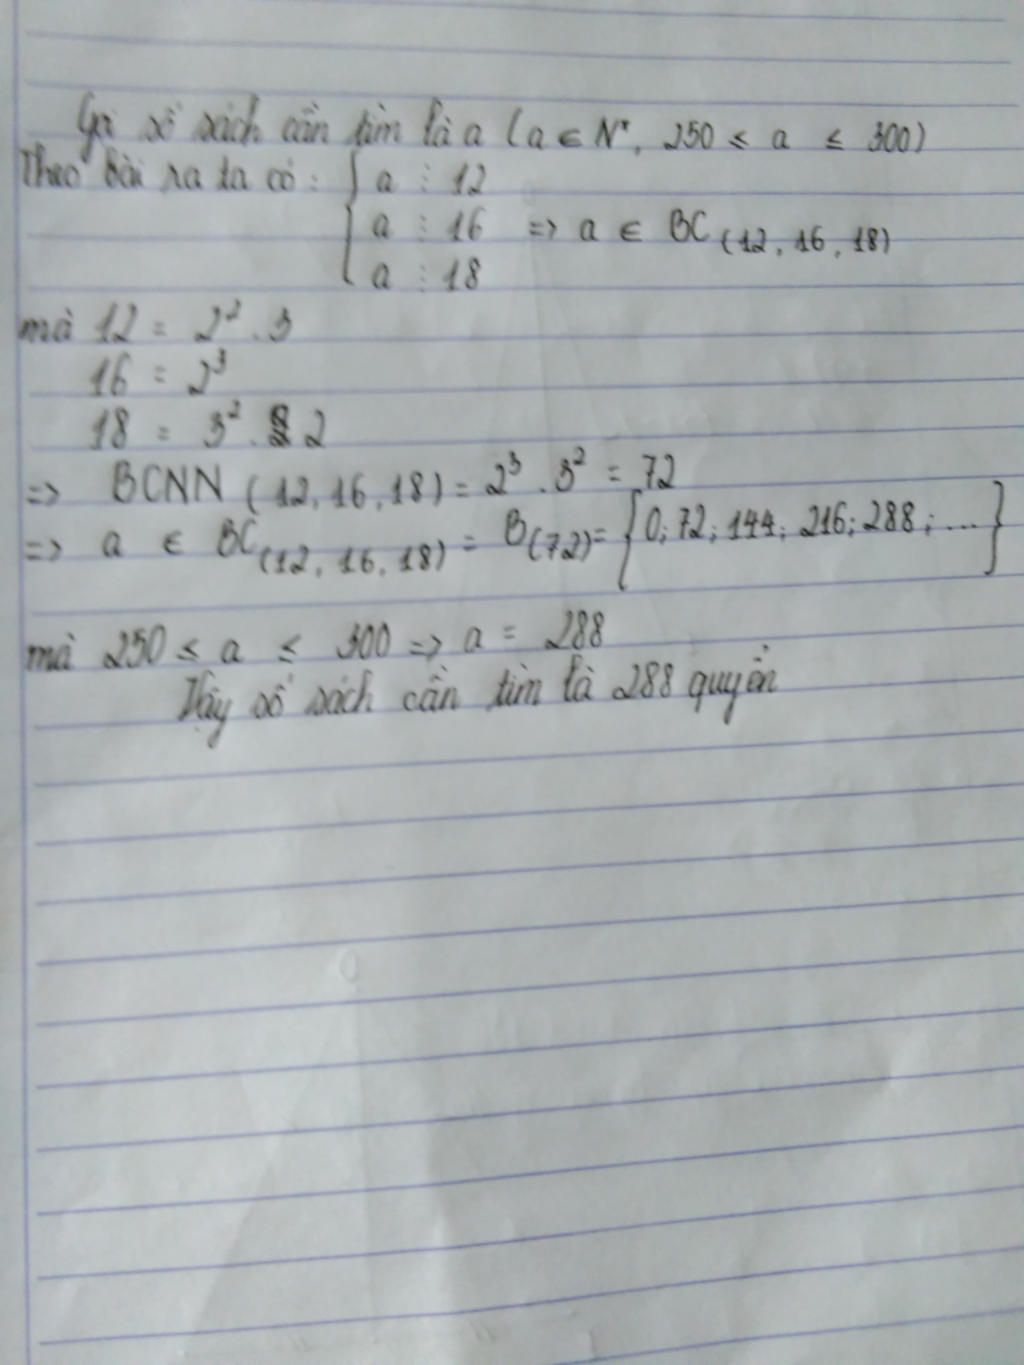 Gọi số sách cần tìm là a (a ∈ N*, 250 ≤ a ≤ 300)
Theo bài ra ta có: { a ⋮ 12
a ⋮ 16 => a ∈ BC(12, 16, 18)
a ⋮ 18
mà 12 = 2² . 3
16 = 2³
18 = 3² . 2
=> BCNN (12, 16, 18) = 2³ . 3² = 72
=> a ∈ BC(12, 16, 18) = B(72) = {0; 72; 144; 216; 288; ...}
mà 250 ≤ a ≤ 300 => a = 288
Vậy số sách cần tìm là 288 quyển